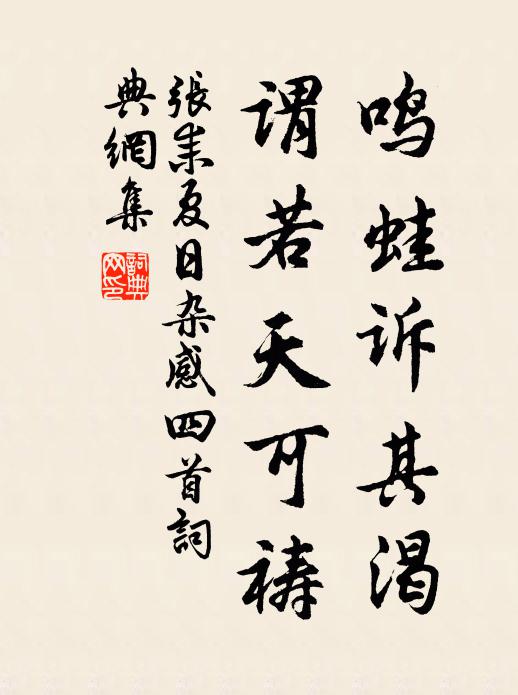 鸣蛙诉其渴
谓若天可祷
張耒夏日杂感四首詞
典網集
詞典网印